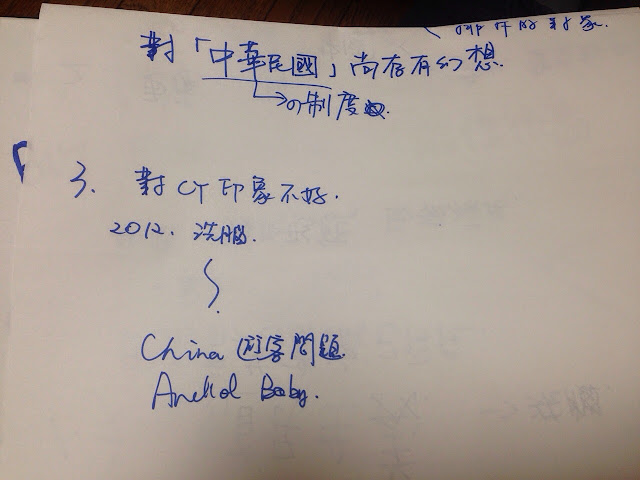 對「中華民國」尚存有幻想.
→の制度
3. 對CY印象不好.
2012. 洗腦.
China 遊客問題.
Baby.